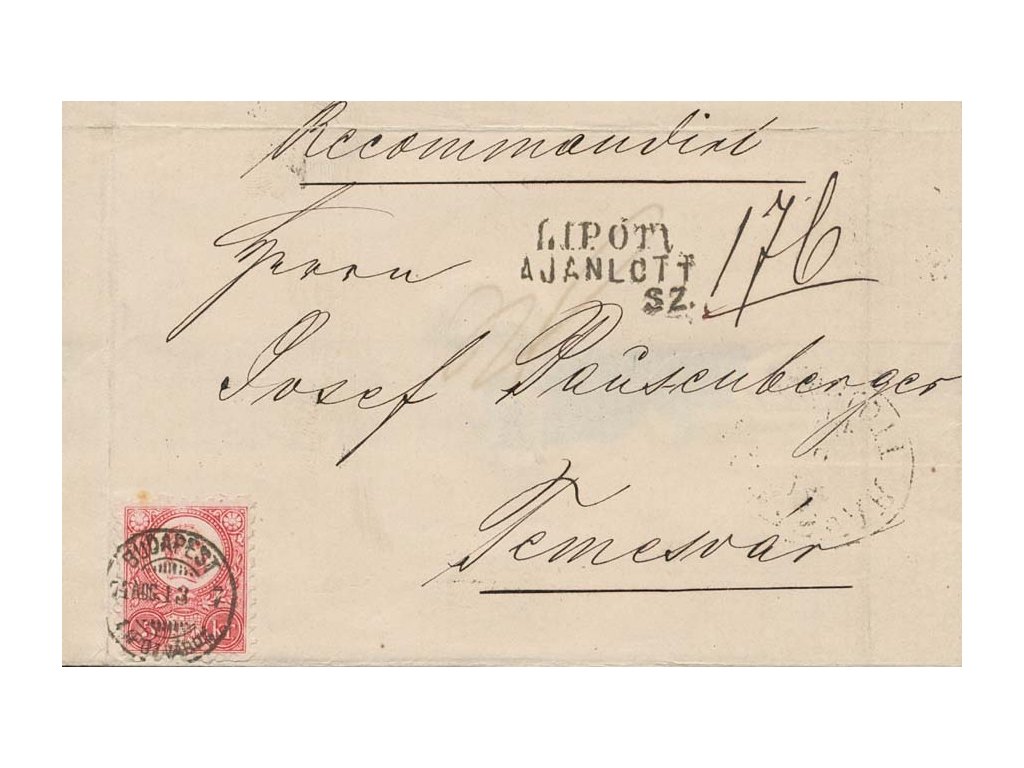 Recommandirt
Herrn
LIPÓT
AJÁNLOTT
SZ.
176
Josef Pausenberger
Temesvár
BUDAPEST
AUG. 13 7